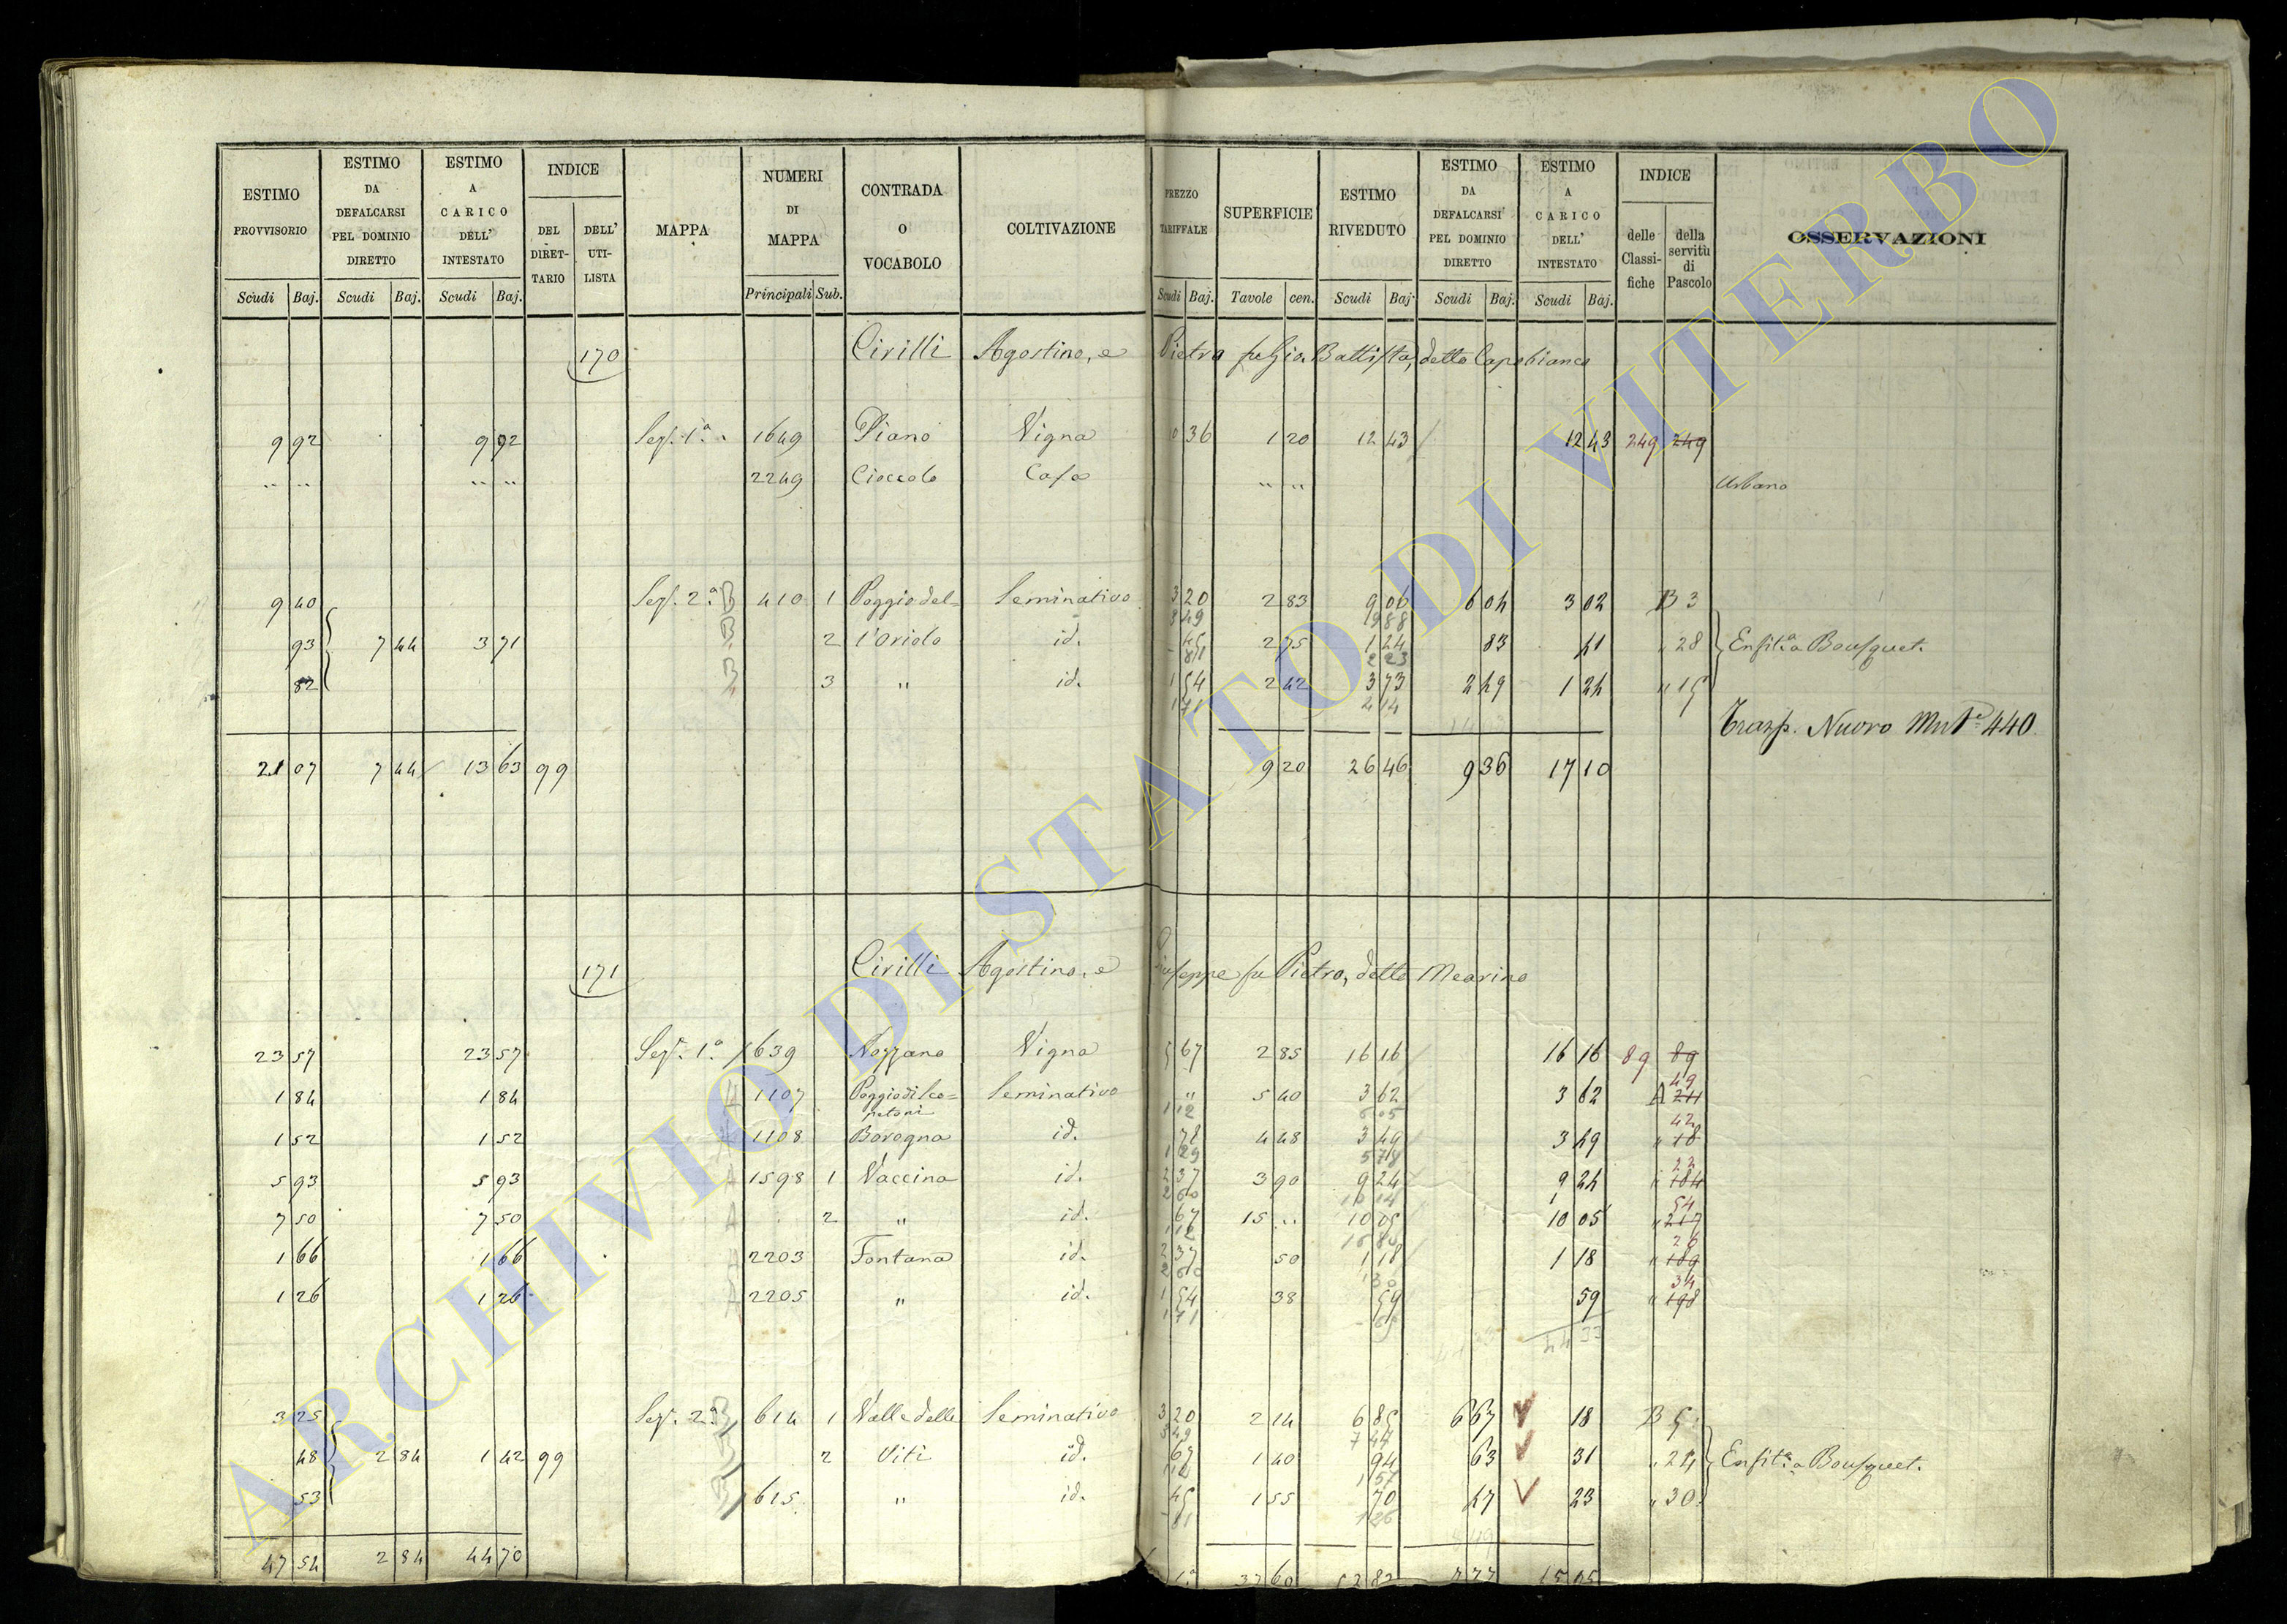 ESTIMO PROVVISORIO Scudi Baj.
ESTIMO DA DEFALCARSI PEL DOMINIO DIRETTO Scudi Baj.
ESTIMO A CARICO DELL' INTESTATO Scudi Baj.
INDICE DEL DIRET-TARIO DELL' UTI-LISTA
MAPPA
NUMERI DI MAPPA Principali Sub.
CONTRADA O VOCABOLO
COLTIVAZIONE
PREZZO TARIFFALE Scudi Baj.
SUPERFICIE Tavole cen.
ESTIMO RIVEDUTO Scudi Baj
ESTIMO DA DEFALCARSI PEL DOMINIO DIRETTO Scudi Baj.
ESTIMO A CARICO DELL' INTESTATO Scudi Baj.
INDICE delle Classi-fiche della servitù di Pascolo
OSSERVAZIONI
170 Cirilli Agostino, e Pietro fu Gio. Battista, detto Capobianco
9 92 9 92 Sez. 1ª 1649 Piano Vigna 36 1 20 12 43 12 43 249 249
" " " " 2249 Cioccolo Casa " " Urbano
9 40 Sez. 2ª B 410 1 Poggio del= Seminativo 3 20 2 83 9 06 6 04 3 02 B 3
3 49 9 88
93 7 44 3 71 B 2 l'Oriolo id. 45 2 75 1 24 83 41 " 28 Enfit.a a Bousquet.
81 2 23
82 B 3 " id. 1 54 2 42 3 73 2 49 1 24 " 15
1 71 4 14
Trasp. Nuovo 440
21 07 7 44 13 63 99 9 20 26 46 9 36 17 10
171 Cirilli Agostino, e Giuseppe fu Pietro, detto Mearino
23 57 23 57 Sez. 1ª 1639 Nazzano Vigna 5 67 2 85 16 16 16 16 89 89
1 84 1 84 A 1107 Poggio di Sco= Seminativo " 5 40 3 62 3 62 A 49
netoni 1 12 6 05
1 52 1 52 A 1108 Bovogna id. 78 4 48 3 49 3 49 " 42 18
1 29 5 78
5 93 5 93 A 1598 1 Vaccina id. 2 37 3 90 9 24 9 24 " 22 184
2 60 10 14
7 50 7 50 A 2 " id. 67 15 " 10 05 10 05 " 54 217
1 12 16 80
1 66 1 66 A 2203 Fontana id. 2 37 50 1 18 1 18 " 26 189
2 60 1 30
1 26 1 26 A 2205 " id. 1 54 38 59 59 " 34 198
1 71 65
44 33
3 25 Sez. 2ª B 614 1 Valle delle Seminativo 3 20 2 14 6 85 6 67 18 B 5
3 49 7 47
48 2 84 1 42 99 B 2 Viti id. 67 1 40 94 63 31 " 24 Enfit.a a Bousquet.
1 12 1 57
53 B 615 " id. 45 1 55 70 47 23 " 30
81 1 26
47 54 2 84 44 70 37 60 52 82 7 77 45 05
ARCHIVIO DI STATO DI VITERBO